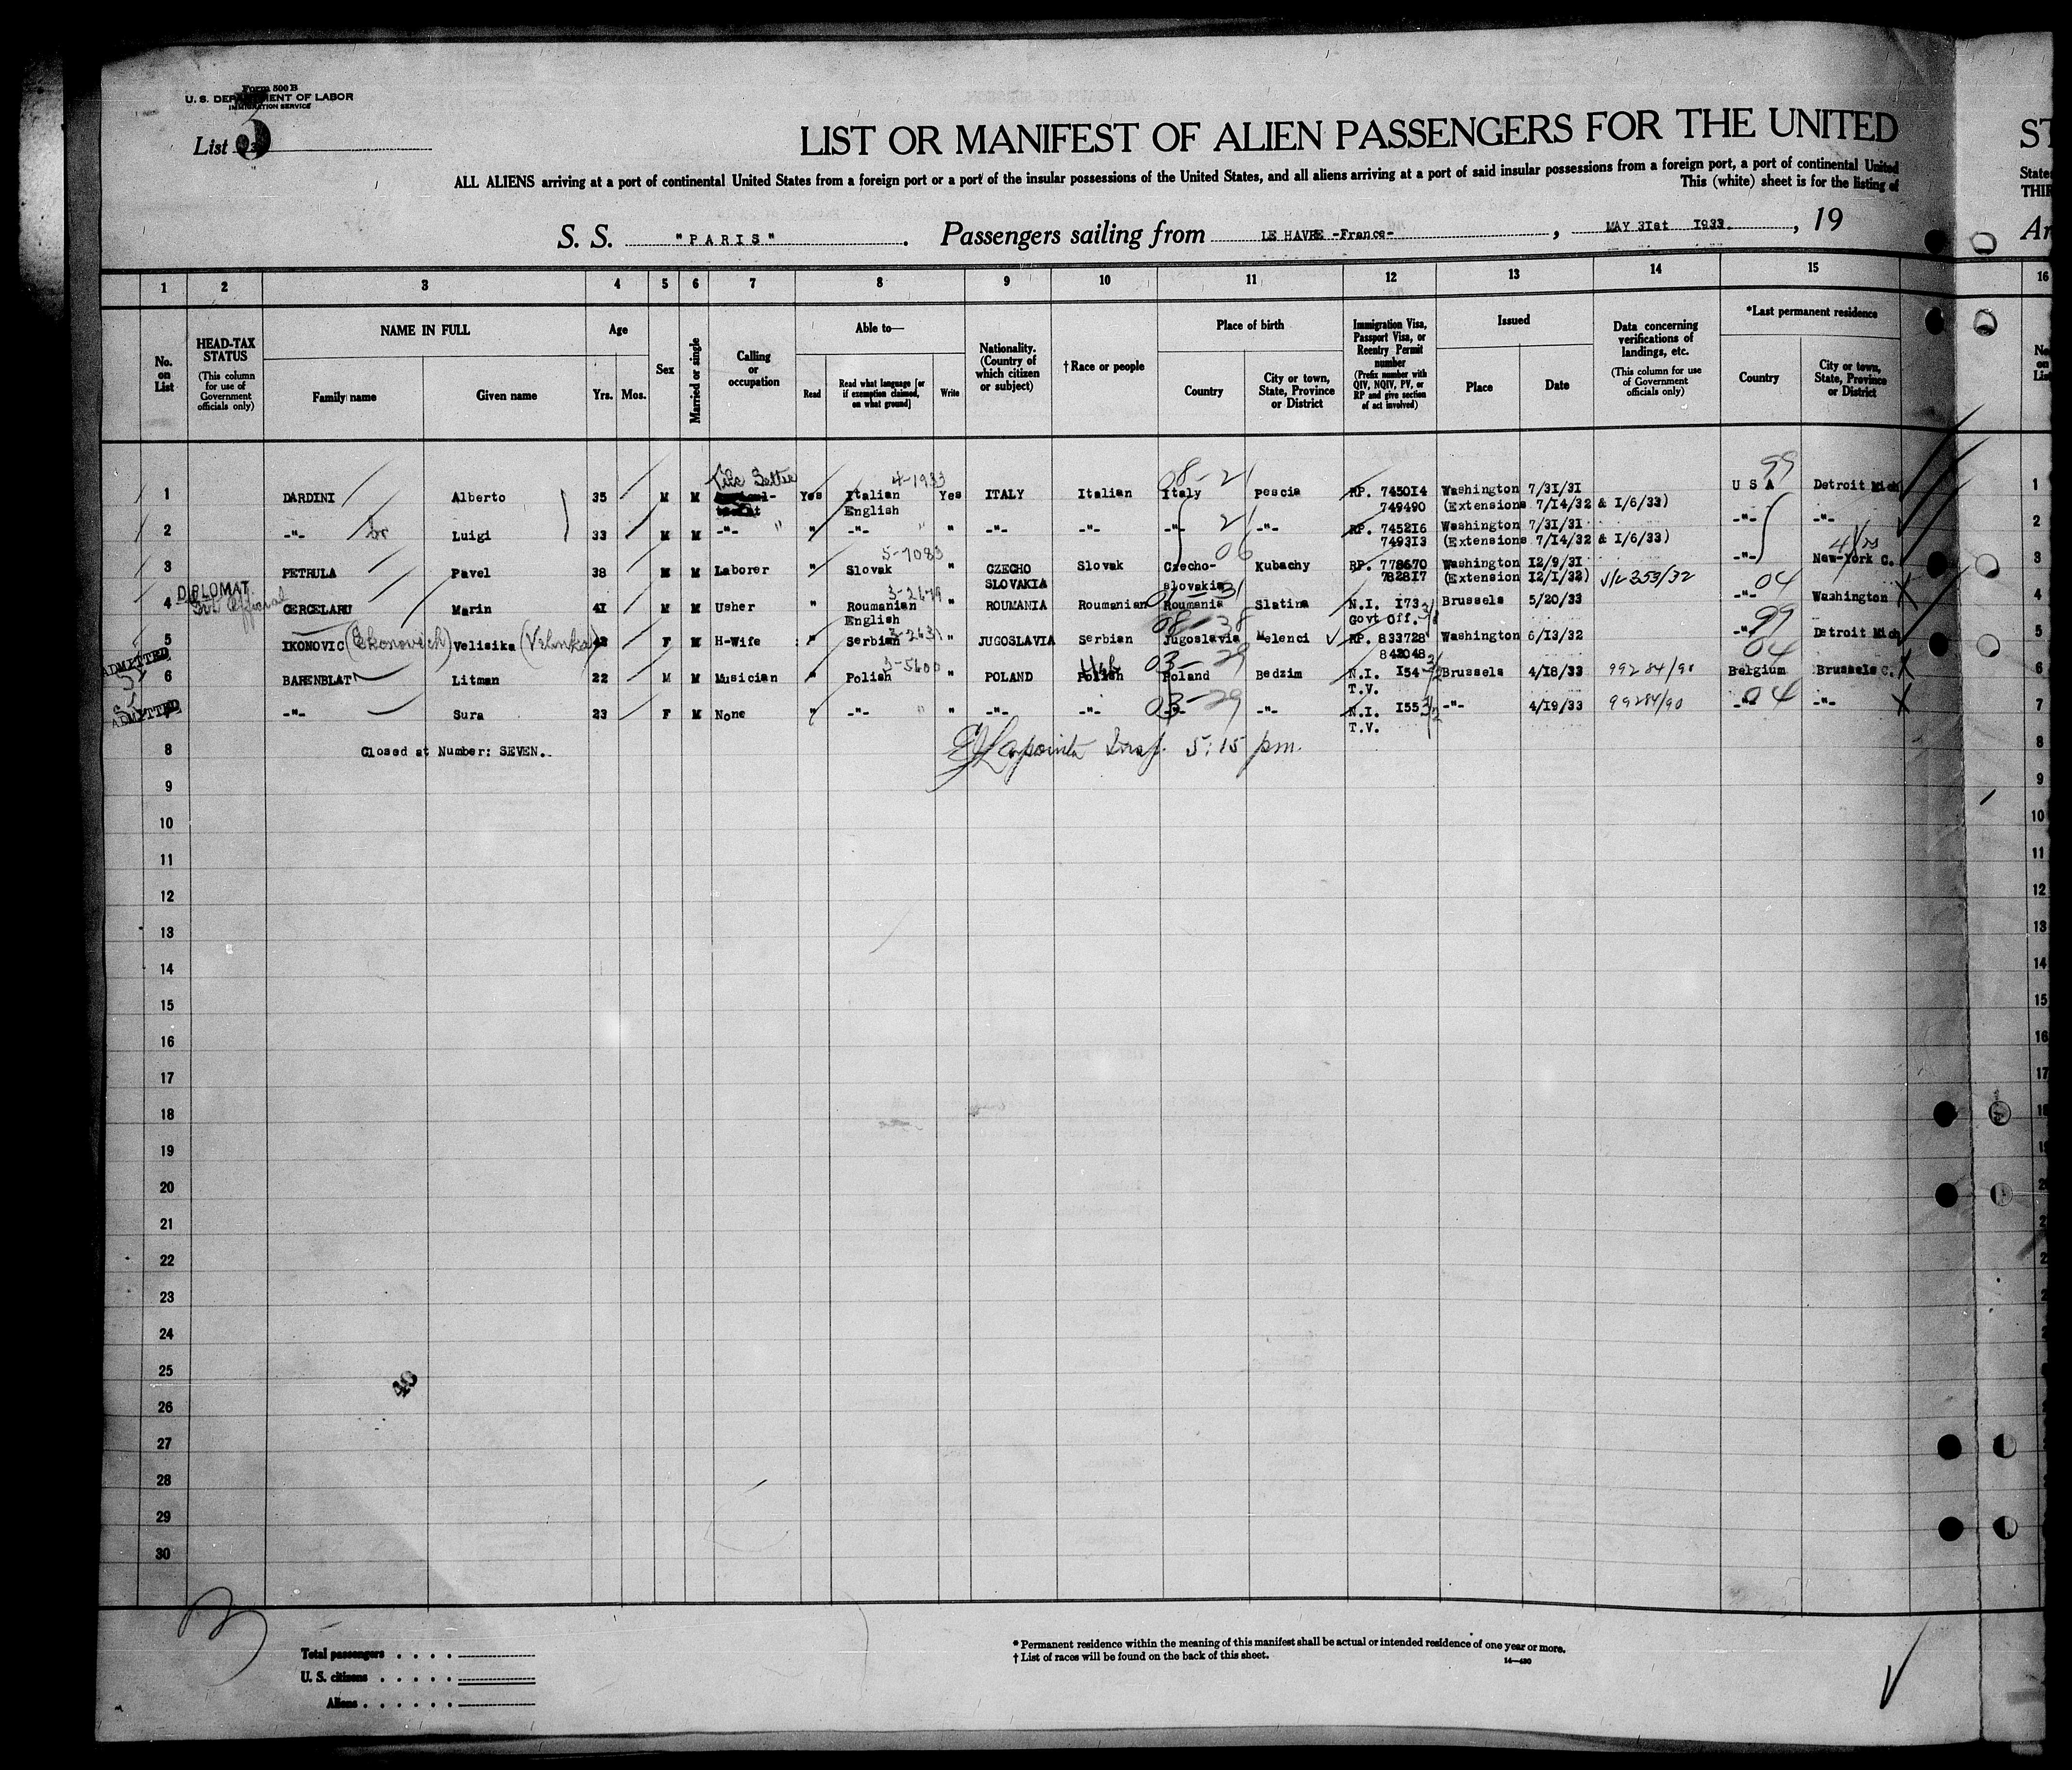 Form 500 B
U. S. DEPARTMENT OF LABOR
IMMIGRATION SERVICE
List 3
LIST OR MANIFEST OF ALIEN PASSENGERS FOR THE UNITED
ALL ALIENS arriving at a port of continental United States from a foreign port or a port of the insular possessions of the United States, and all aliens arriving at a port of said insular possessions from a foreign port, a port of continental United
This (white) sheet is for the listing of
S. S. "PARIS". Passengers sailing from LE HAVRE -France-, MAY 31st 1933., 19
1 2 3 4 5 6 7 8 9 10 11 12 13 14 15 16
No. on List
HEAD-TAX STATUS
(This column for use of Government officials only)
NAME IN FULL
Family name Given name
Age
Yrs. Mos.
Sex
Married or single
Calling or occupation
Able to—
Read
Read what language [or if exemption claimed, on what ground]
Write
Nationality. (Country of which citizen or subject)
†Race or people
Place of birth
Country
City or town, State, Province or District
Immigration Visa, Passport Visa, or Reentry Permit number
(Prefix number with QIV, NQIV, PV, or RP and give section of act involved)
Issued
Place Date
Data concerning verifications of landings, etc.
(This column for use of Government officials only)
*Last permanent residence
Country
City or town, State, Province or District
4-1933 08-21 99
1 DARDINI Alberto 35 M M Yes Italian Yes ITALY Italian Italy Pescia RP. 745014 Washington 7/31/31 U S A Detroit Mich 1
English 749490 (Extensions 7/14/32 & 1/6/33)
2 -"- br Luigi 33 M M -"- " -"- " -"- -"- -"- 21 -"- RP. 745216 Washington 7/31/31 -"- -"- 2
749313 (Extensions 7/14/32 & 1/6/33)
5-7083 06
3 PETRULA Pavel 38 M M Laborer " Slovak " CZECHO Slovak Czecho- Kubachy RP. 778670 Washington 12/9/31 -"- New-York C. 3
SLOVAKIA slovakia 782817 (Extension 12/1/32) 04
DIPLOMAT
4 CERCELARU Marin 41 M M Usher " Roumanian " ROUMANIA Roumanian Roumania Slatina N.I. 173 Brussels 5/20/33 -"- Washington 4
English Govt Off.
08-38 99
5 IKONOVIC (Ekonovich) Velisika 42 F M H-Wife " Serbian " JUGOSLAVIA Serbian Jugoslavia Melenci RP. 833728 Washington 6/13/32 -"- Detroit Mich 5
842048
ADMITTED
3-5600 03-29 04
6 BARENBLAT Litman 22 M M Musician " Polish " POLAND Polish Poland Bedzim N.I. 154 Brussels 4/18/33 99284/90 Belgium Brussels C. 6
T.V.
ADMITTED
7 -"- Sura 23 F M None " -"- " -"- -"- 03-29 -"- N.I. 155 -"- 4/19/33 99284/90 -"- 04 -"- 7
T.V.
8 Closed at Number: SEVEN. Lapointe Insp. 5:15 pm. 8
9 9
10 10
11 11
12 12
13 13
14 14
15 15
16 16
17 17
18
19
20
21
22
23
24
25
40
26
27
28
29
30
3
Total passengers . . . .
U. S. citizens . . . . .
Aliens . . . . . .
* Permanent residence within the meaning of this manifest shall be actual or intended residence of one year or more.
† List of races will be found on the back of this sheet.
14—430